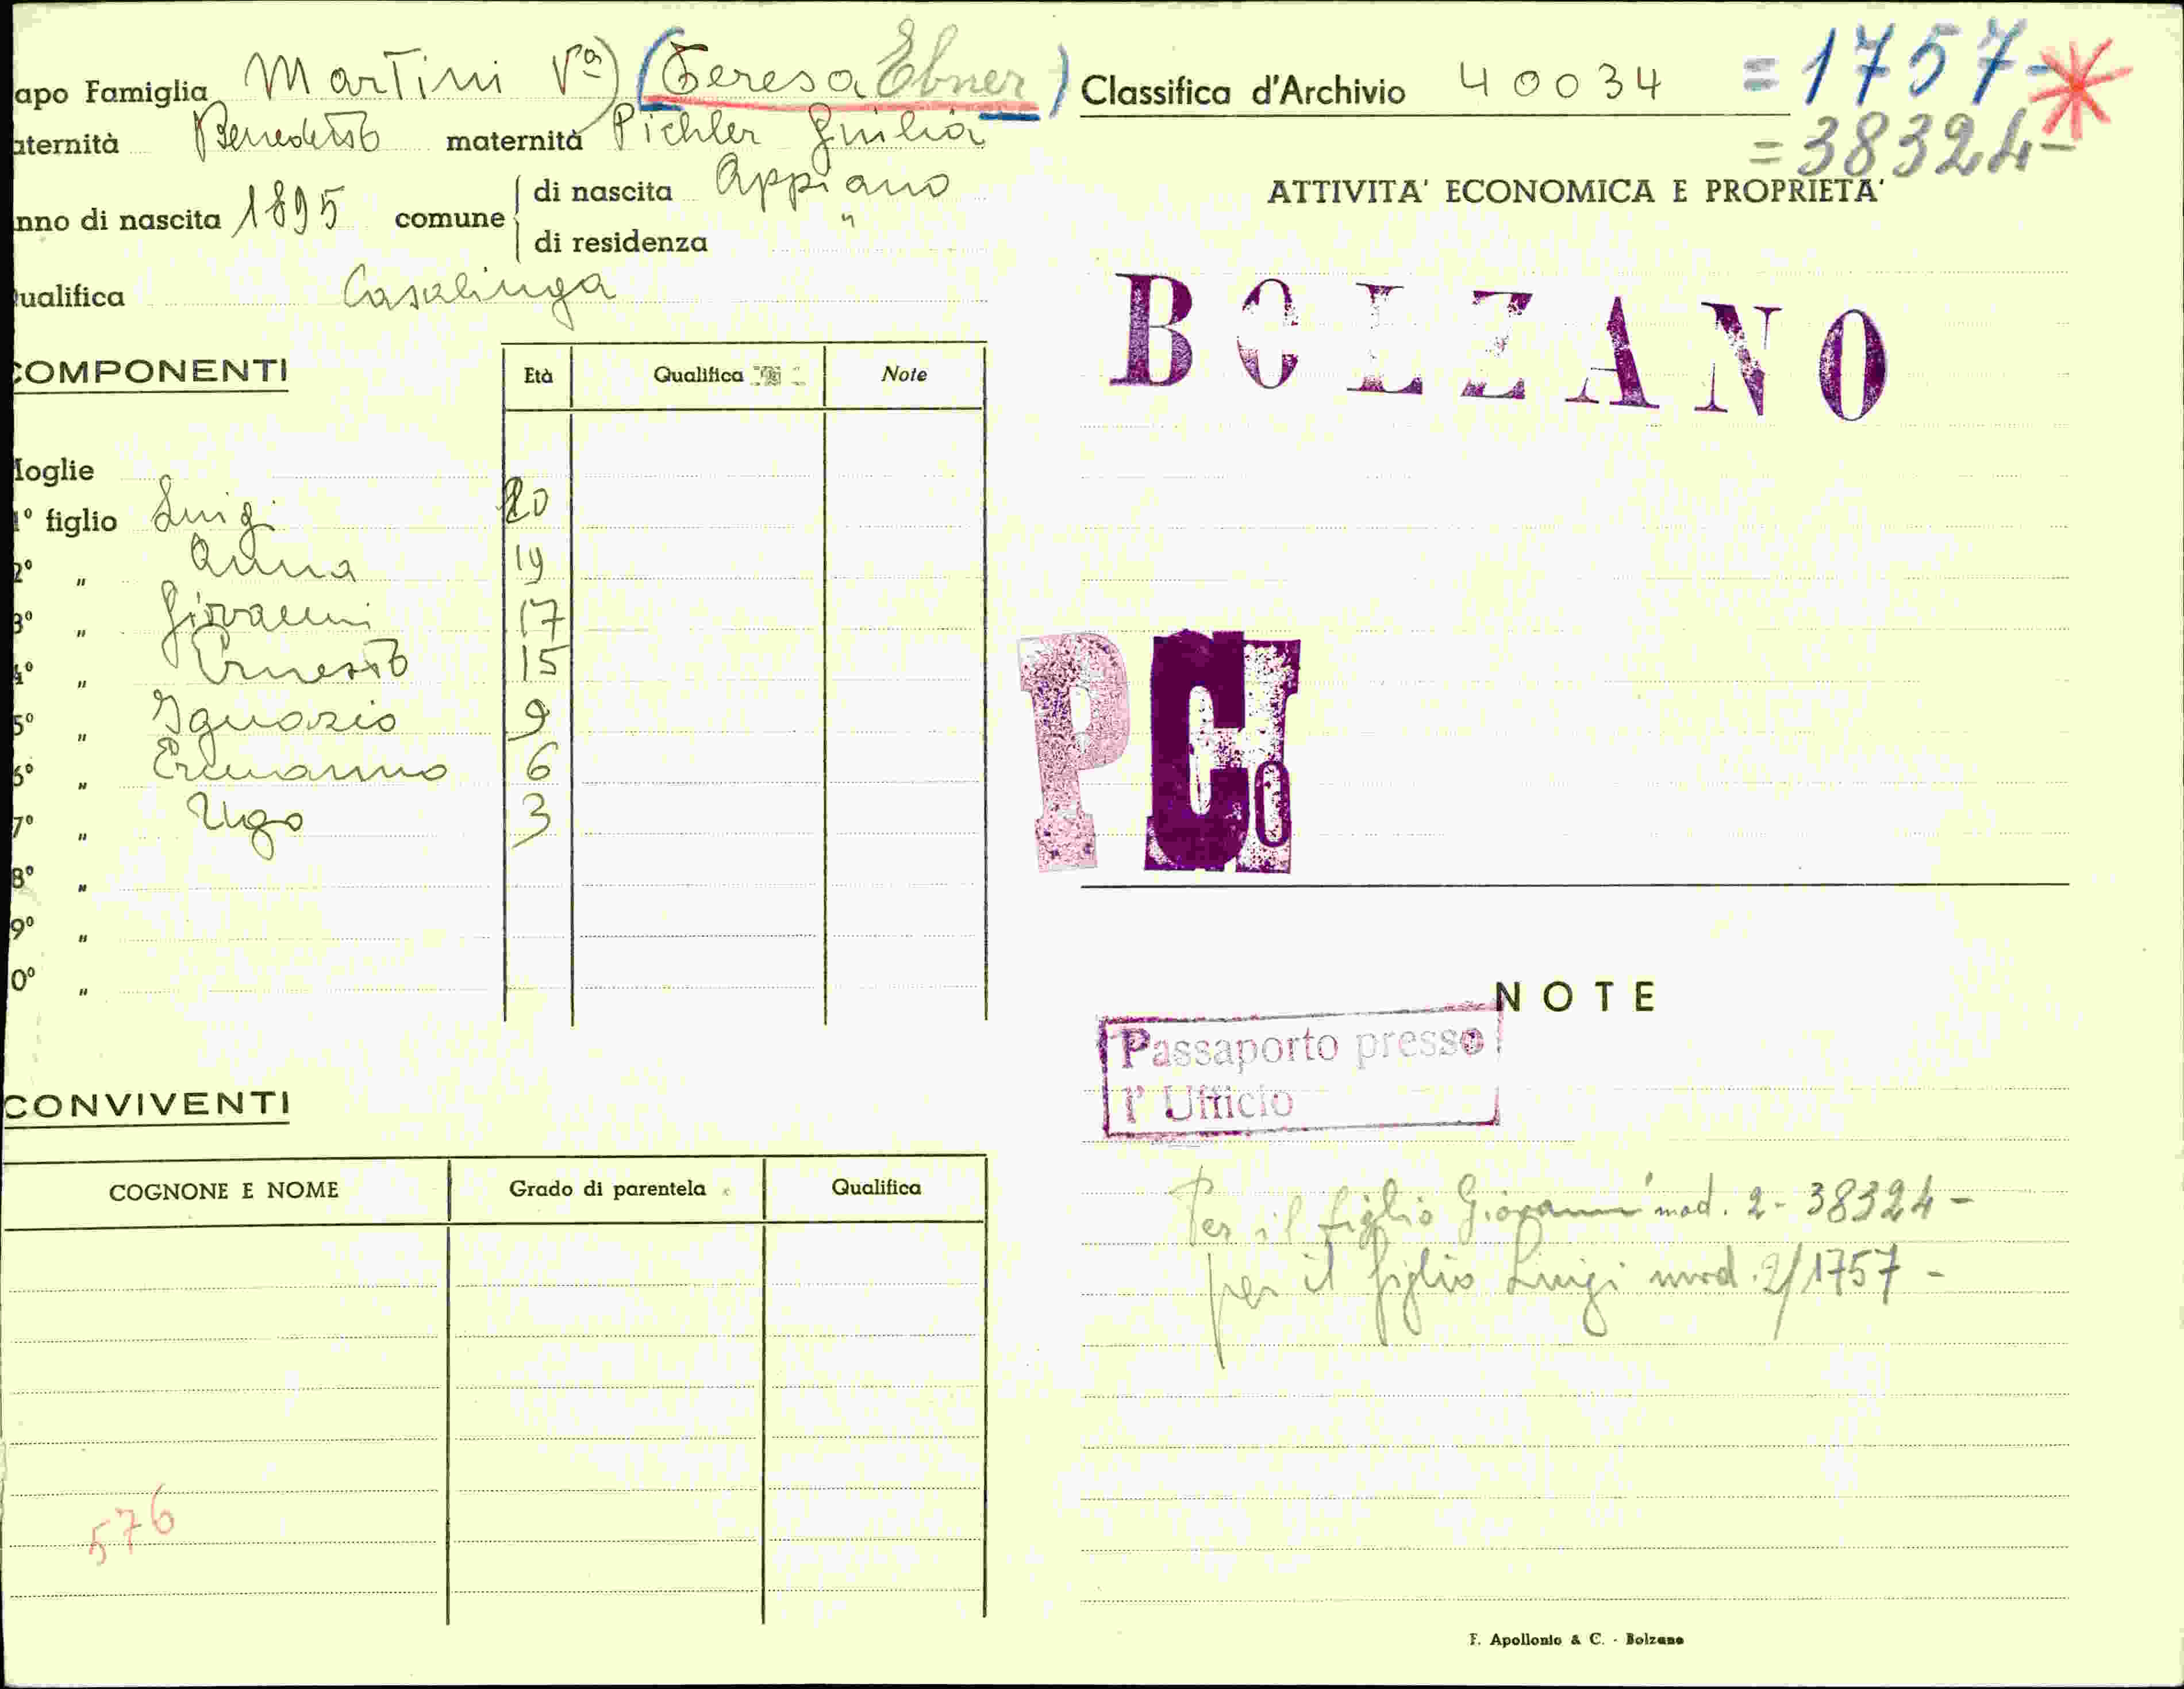 apo Famiglia Martini Vª) (Teresa Ebner)
aternità Benedetto maternità Pichler Giulia
nno di nascita 1895 comune di nascita Appiano
di residenza "
ualifica Casalinga
COMPONENTI
Età Qualifica Note
Moglie
1° figlio Luigi 20
2° " Anna 19
3° " Giovanni 17
4° " Ernesto 15
5° " Ignazio 9
6° " Ermanno 6
7° " Ugo 3
8° "
9° "
0° "
CONVIVENTI
COGNONE E NOME Grado di parentela Qualifica
576
Classifica d'Archivio 40034 = 1757-
= 38324-
ATTIVITA' ECONOMICA E PROPRIETA'
BOLZANO
P
NOTE
Passaporto presso
l' Ufficio
Per il figlio Giovanni mod. 2 - 38324 -
per il figlio Luigi mod. 2/1757 -
F. Apollonio & C. - Bolzano